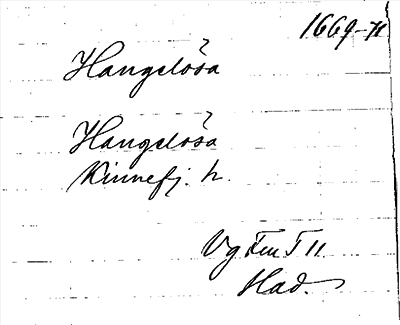 1669-71
Hangelösa
Hangelösa
Kinnefj. h.
Vg Fem I 11
Had.